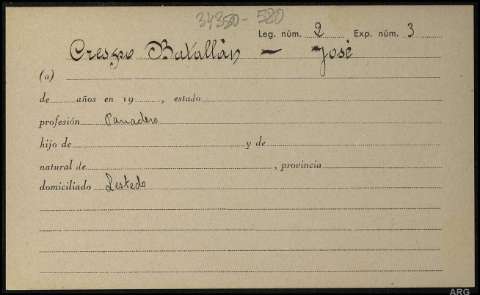 34350-580
Leg. núm. 2 Exp. núm. 3
Crespo Batallán — José
(a)
de años en 19 , estado
profesión Panadero
hijo de y de
natural de , provincia
domiciliado Restedo
ARG